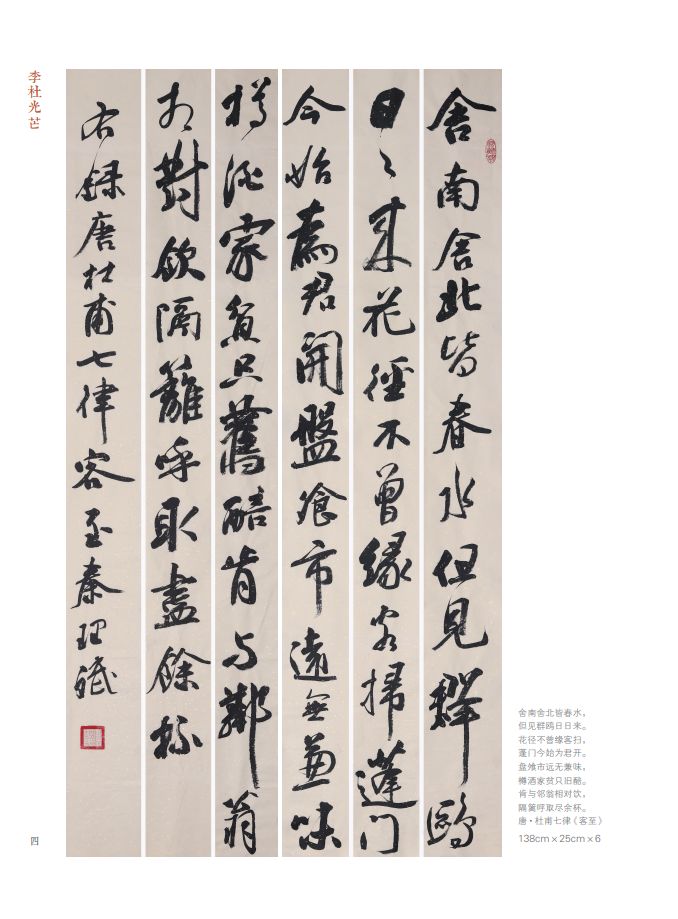 李杜光芒
舍南舍北皆春水但見群鷗
日日来花径不曾缘客掃蓬门
今始為君開盤飧市遠無兼味
樽酒家貧只舊醅肯与鄰翁
相對飲隔籬呼取盡餘杯
右録唐杜甫七律客至秦理斌
舍南舍北皆春水，
但见群鸥日日来。
花径不曾缘客扫，
蓬门今始为君开。
盘飧市远无兼味，
樽酒家贫只旧醅。
肯与邻翁相对饮，
隔篱呼取尽余杯。
唐·杜甫七律《客至》
138cm×25cm×6
四